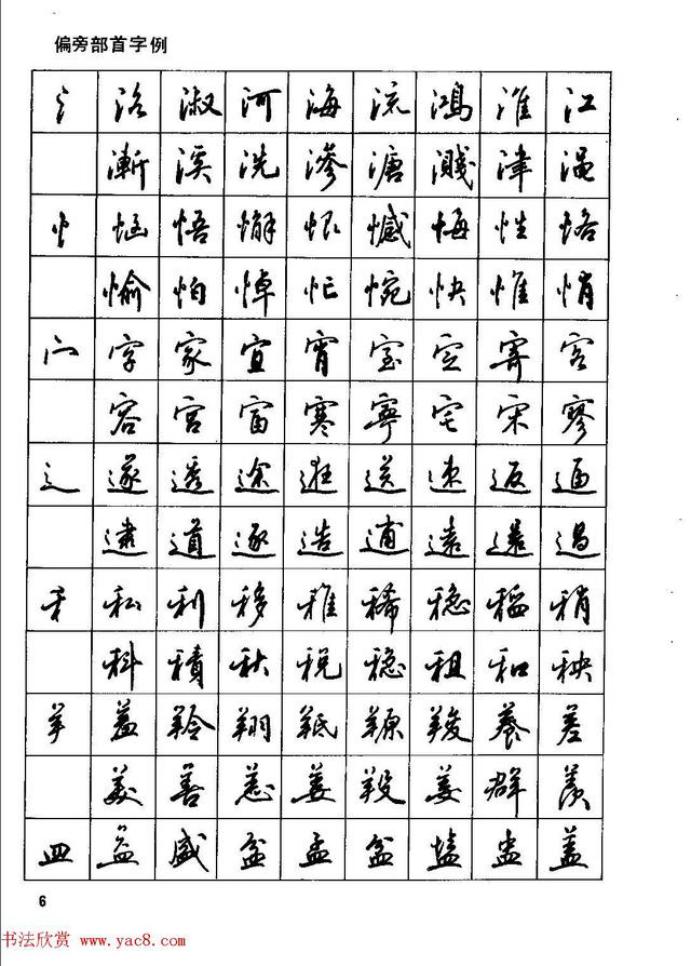 偏旁部首字例
氵 洛 淑 河 海 流 鸿 淮 江
渐 溪 洗 渗 溏 溅 津 渑
忄 悟 懈 恨 憾 悔 性 恪
愉 怕 悼 忙 惋 快 惟 悄
宀 字 家 宜 宵 室 定 寄 客
容 宫 富 寒 宁 宅 宋 寥
辶 遂 透 途 逛 送 速 返 逼
逮 道 逐 造 逋 遠 還 遏
禾 私 利 移 稚 稀 稳 稻 稍
科 積 秋 税 稳 租 和 秧
羊 盖 羚 翔 羝 羱 羧 養 差
美 善 恙 姜 羖 姜 群 羡
皿 益 盛 盆 孟 盆 盍 盅 盖
6
书法欣赏 www.yac8.com